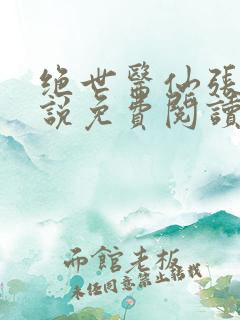 绝世醫仙張
說免費閱讀
布館老板
未经同意禁止转载